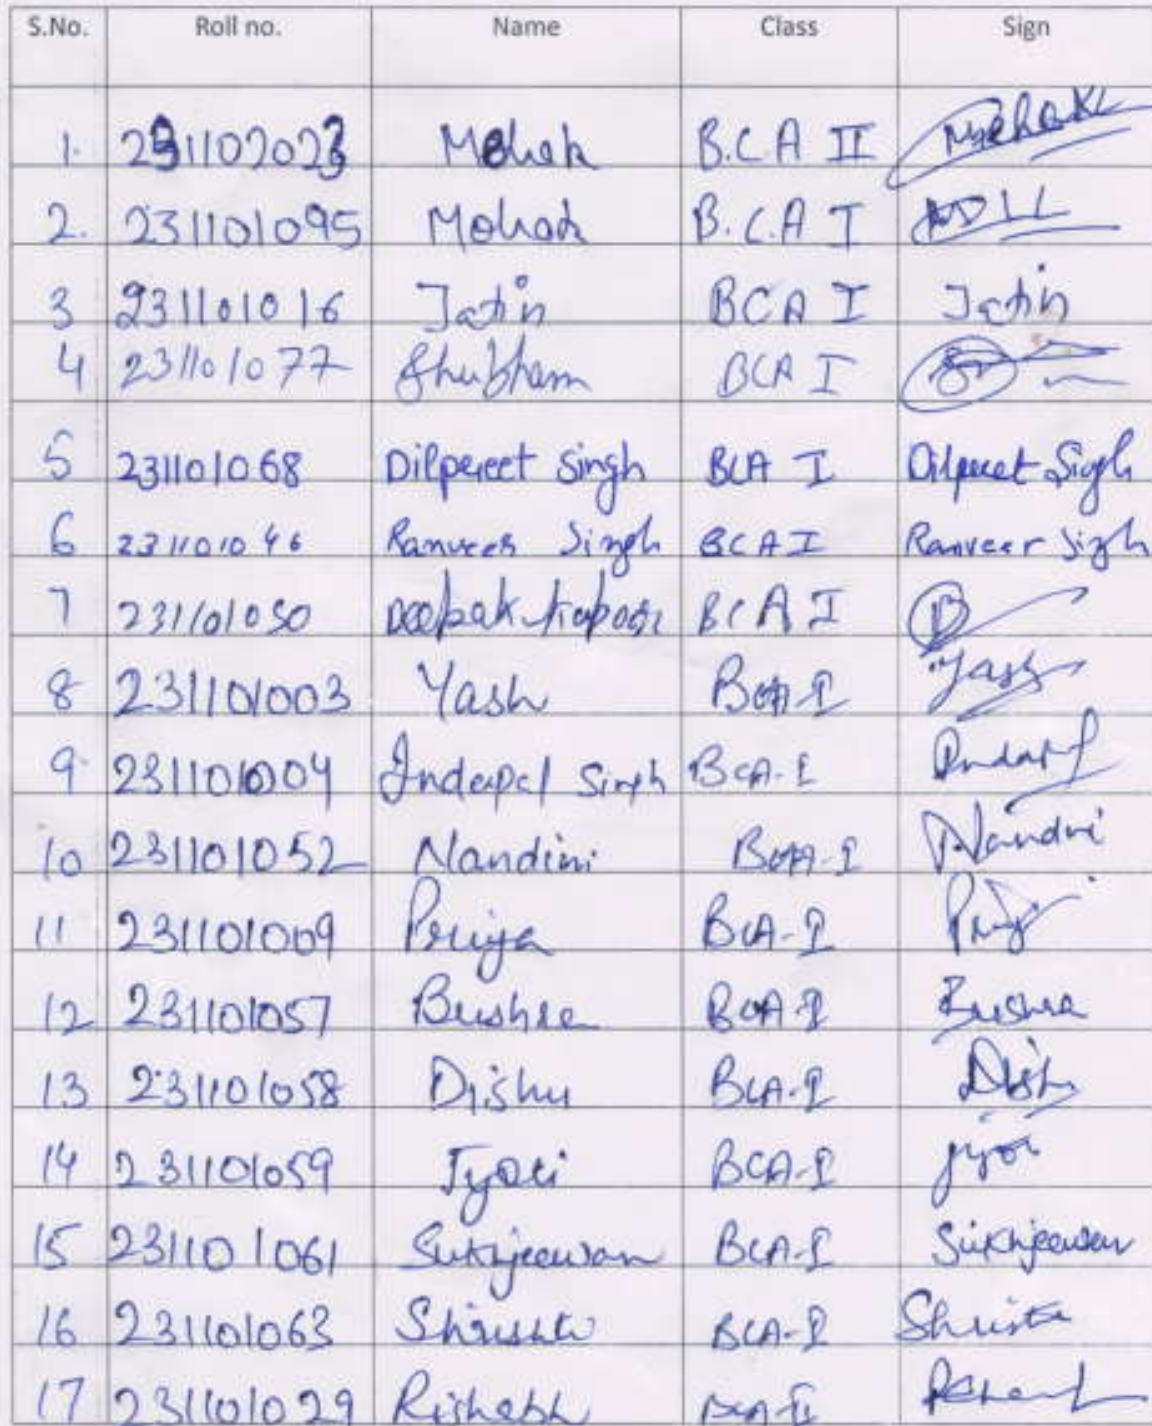 S.No. Roll no. Name Class Sign
1. 231102023 Mehak B.C.A II Mehak
2. 231101095 Mohak B.C.A I
3 231101016 Jatin BCA I Jatin
4 231101077 Shubham BCA I
5 231101068 Dilpreet Singh BCA I Dilpreet Singh
6 231101046 Ranveer Singh BCA I Ranveer Singh
7 231101050 Deepak Kapoor BCA I
8 231101003 Yash BCA-I Yash
9 231101004 Inderpal Singh BCA-I
10 231101052 Nandini BCA-I Nandni
11 231101009 Priya BCA-I
12 231101057 Bushra BCA-I Bushra
13 231101058 Dishu BCA-I
14 231101059 Jyoti BCA-I
15 231101061 Sukhjeewan BCA-I Sukhjeewan
16 231101063 Shrishti BCA-I
17 231101029 Rishabh BCA-II